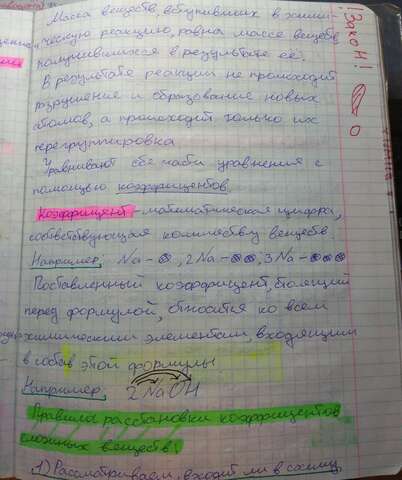 Масса веществ, вступивших в хими-
ческую реакцию, равна массе веществ
получившихся в результате её.
! Закон!
В результате реакции не происходит
разрушение и образование новых
атомов, а происходит только их
перегруппировка
Уравнивают обе части уравнения с
помощью коэффициентов.
Коэффициент - математическая цифра,
соответствующая количеству веществ
Например: Na - , 2Na - , 3Na -
Поставленный коэффициент, стоящий
перед формулой, относится ко всем
химическим элементам, входящим
в состав этой формулы
Например: 2NaOH
Правила расстановки коэффициентов
сложных веществ:
1) Рассматриваем, входит ли в схему